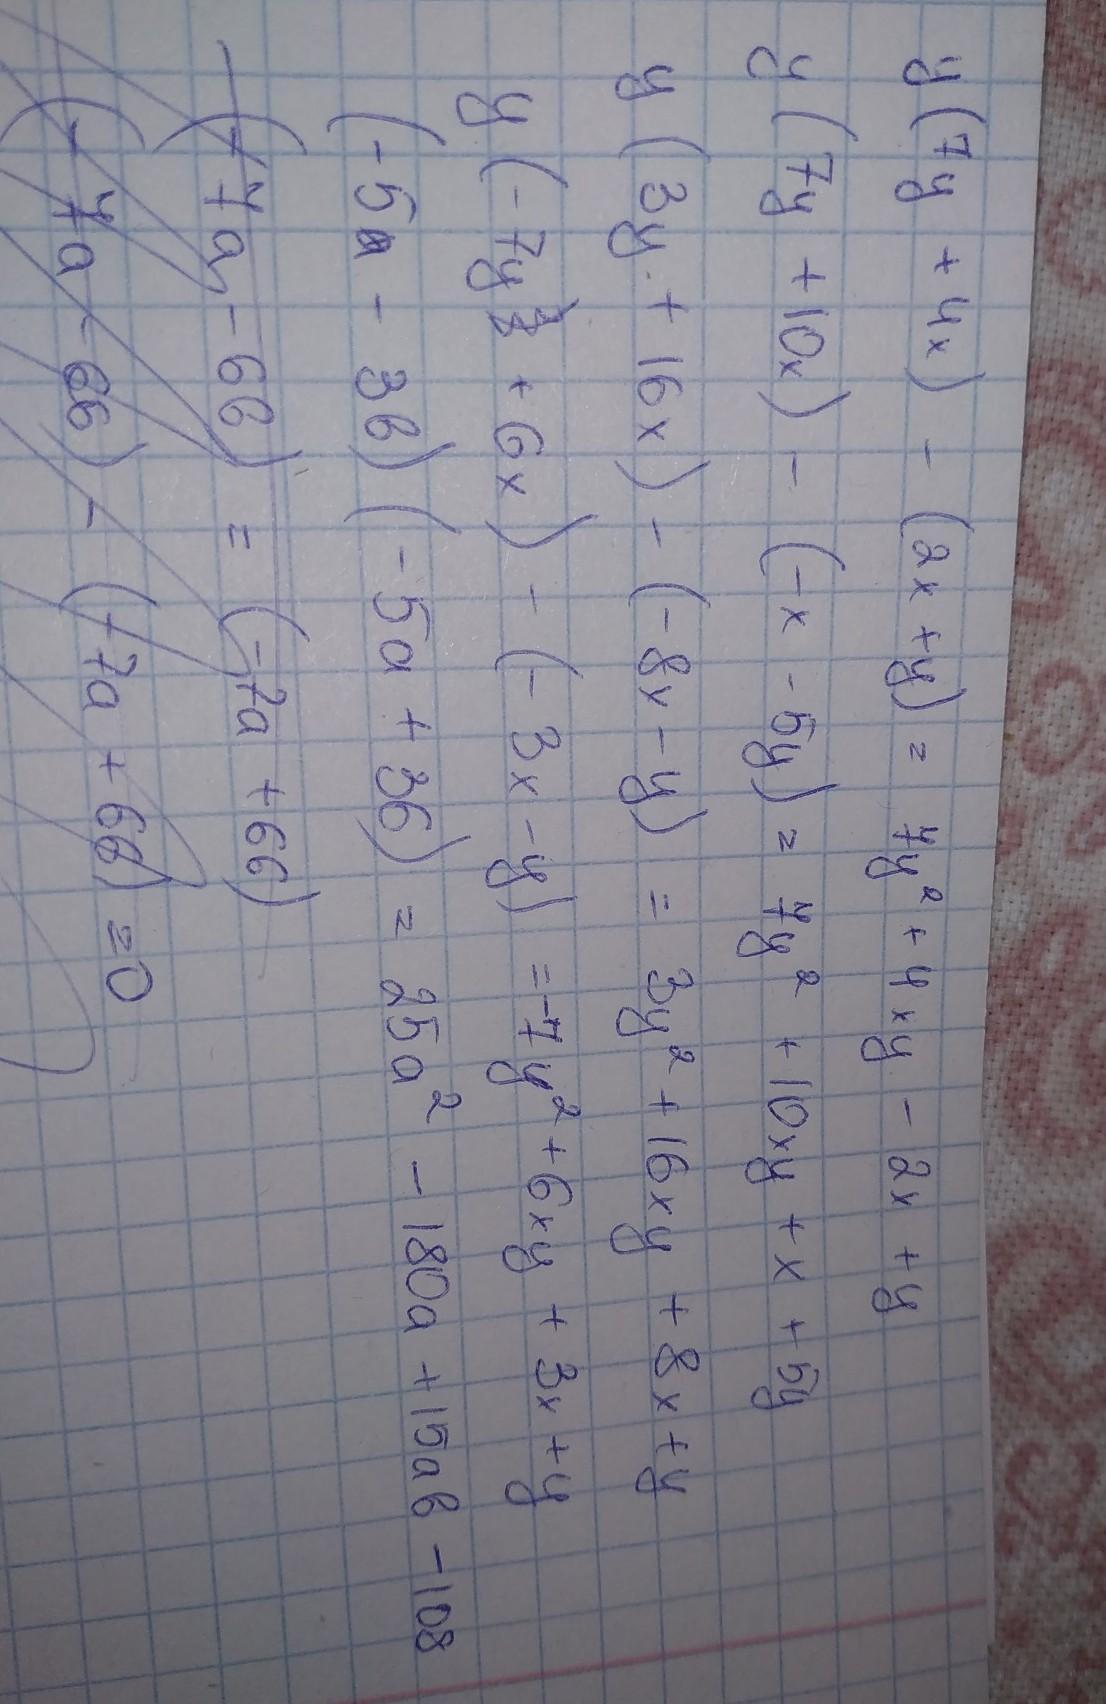 y(7y + 4x) - (2x + y) = 7y² + 4xy - 2x + y
y(7y + 10x) - (-x - 5y) = 7y² + 10xy + x + 5y
y(3y + 16x) - (-8x - y) = 3y² + 16xy + 8x + y
y(-7y + 6x) - (-3x - y) = -7y² + 6xy + 3x + y
(-5a - 3в)(-5a + 36) = 25a² - 180a + 15aв - 108
(-7a - 6в) = (-7a + 6в)
(-7a - 6в) - (-7a + 6в) = 0